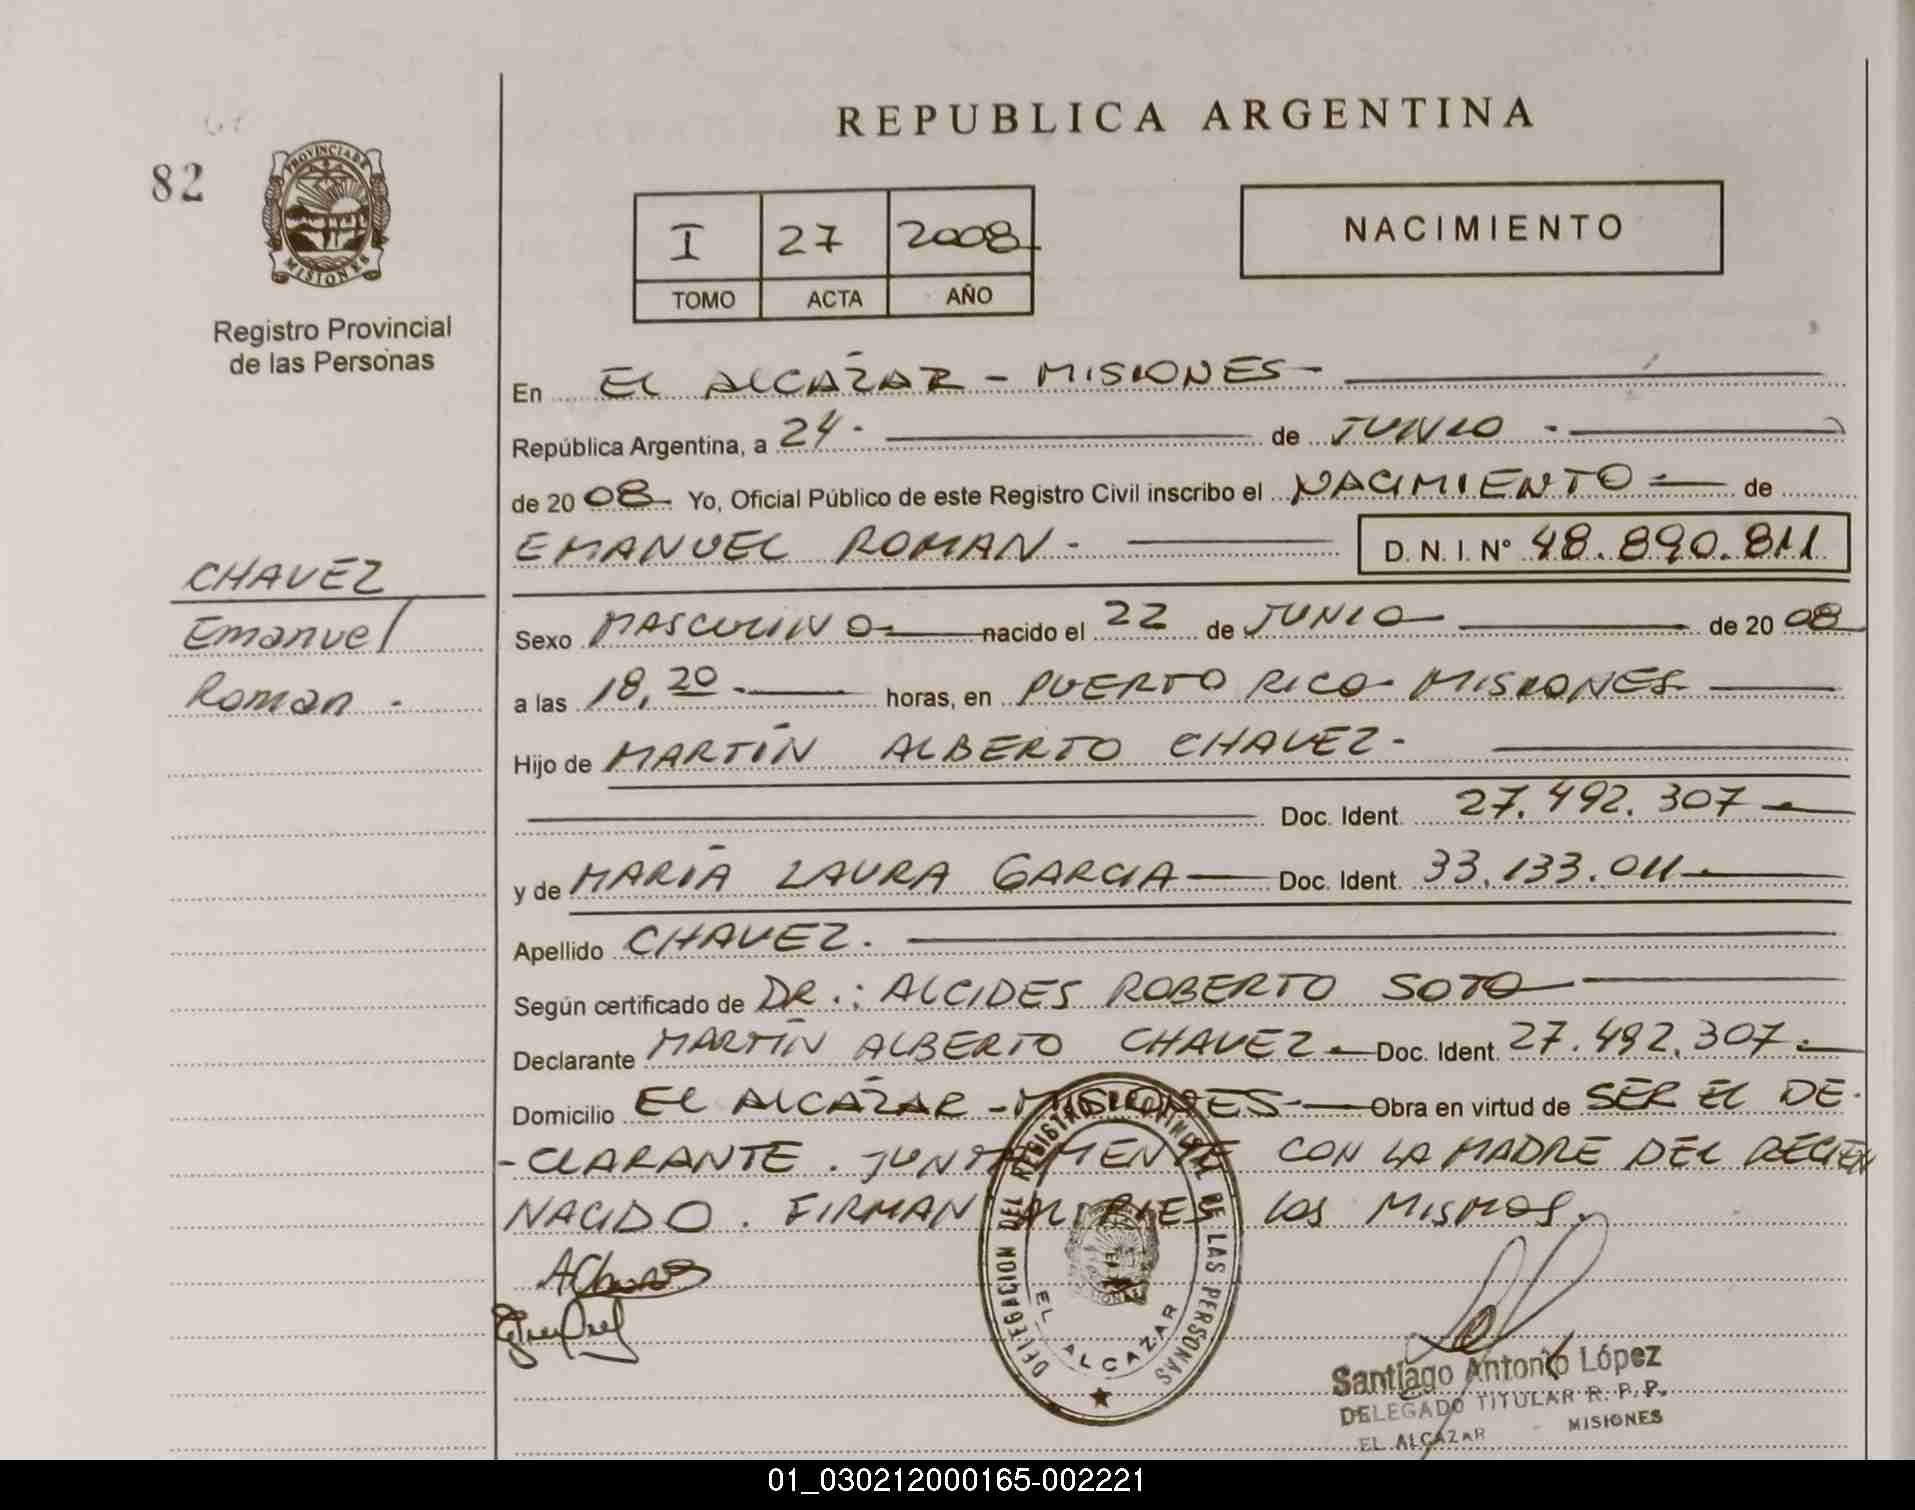 REPUBLICA ARGENTINA
82
PROVINCIA DE
MISIONES
Registro Provincial
de las Personas
I 27 2008
TOMO ACTA AÑO
NACIMIENTO
En EL ALCAZAR - MISIONES -
República Argentina, a 24 - de JUNIO -
de 20 08 Yo, Oficial Público de este Registro Civil inscribo el NACIMIENTO - de
EMANUEL ROMAN - D. N. I. Nº 48.890.811
CHAVEZ
Emanuel
Roman -
Sexo MASCULINO - nacido el 22 de JUNIO - de 20 08
a las 18,20 - horas, en PUERTO RICO - MISIONES
Hijo de MARTÍN ALBERTO CHAVEZ -
Doc. Ident. 27.492.307 -
y de MARÍA LAURA GARCIA - Doc. Ident. 33.133.011 -
Apellido CHAVEZ.
Según certificado de DR.: ALCIDES ROBERTO SOTO
Declarante MARTÍN ALBERTO CHAVEZ - Doc. Ident. 27.492.307 -
Domicilio EL ALCÁZAR - MISIONES - Obra en virtud de SER EL DE-
-CLARANTE. JUNTAMENTE CON LA MADRE DEL RECIEN
NACIDO. FIRMAN AL PIE LOS MISMOS.
DELEGACION DEL REGISTRO PROVINCIAL DE LAS PERSONAS
EL ALCAZAR
Santiago Antonio López
DELEGADO TITULAR R. P. P.
EL ALCAZAR MISIONES
01_030212000165-002221